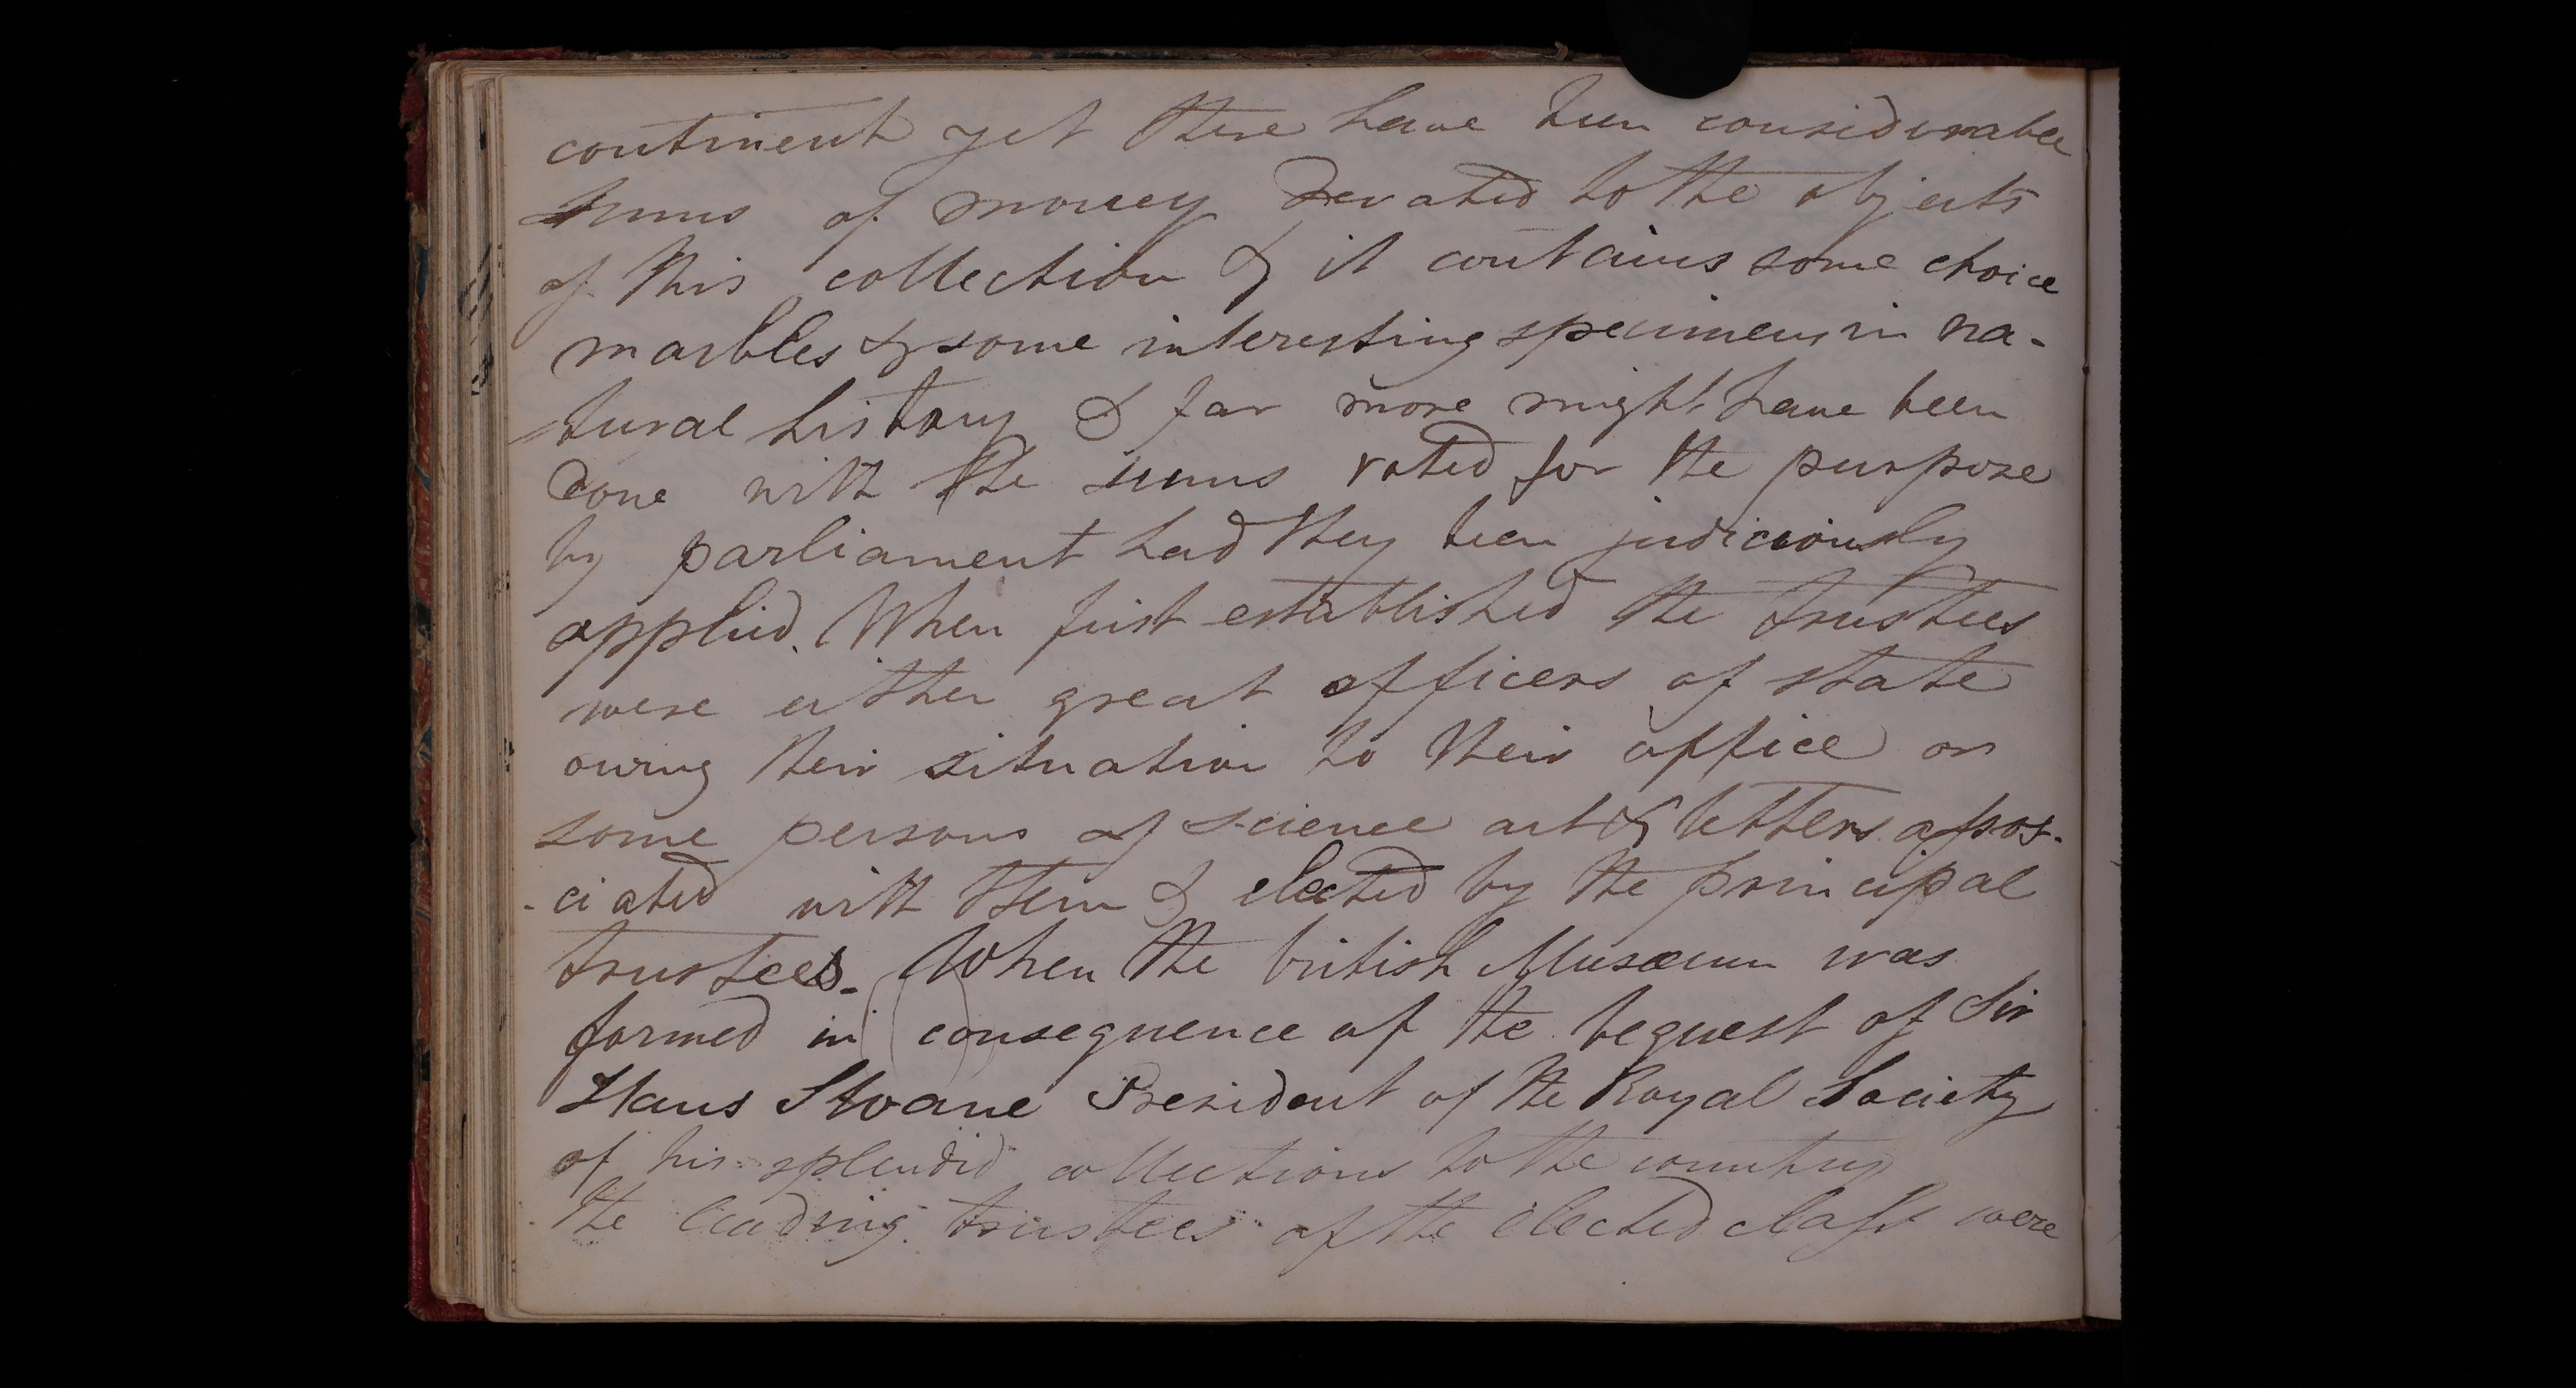 continent yet there have been considerable
sums of money devoted to the objects
of this collection & it contains some choice
marbles & some interesting specimens in na-
tural history & far more might have been
done with the sums voted for the purpose
by parliament had they been judiciously
applied. When first established the trustees
were either great officers of state
owing their situation to their office or
some persons of science art & letters assos-
-ciated with them & elected by the principal
trustees. When the british Musæum was
formed in consequence of the bequest of Sir
Hans Sloane President of the Royal Society
of his splendid collections to the country
the leading trustees of the elected class were